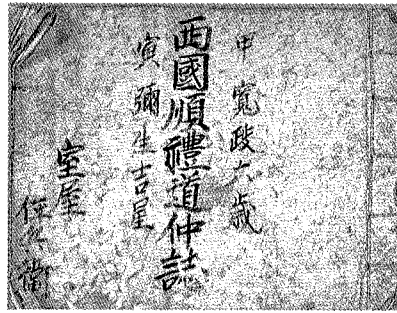 甲 寛政六歳
西國順禮道仲誌
寅 彌生吉星
室屋
衛